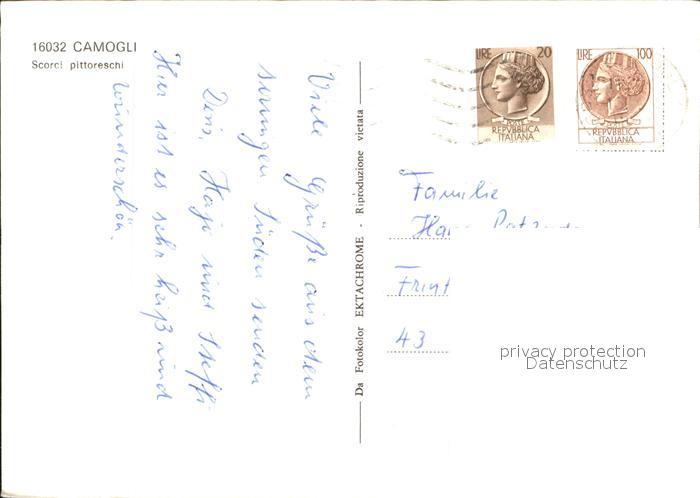 16032 CAMOGLI
Scorci pittoreschi
LIRE 20
POSTE
REPVBBLICA
ITALIANA
LIRE 100
POSTE
REPVBBLICA
ITALIANA
Viele Grüße aus dem
sonnigen Süden senden
Hajo und Steffi
Hier ist es sehr heiß und
wunderschön.
Da Fotokolor EKTACHROME - Riproduzione vietata
Familie
43
privacy protection
Datenschutz